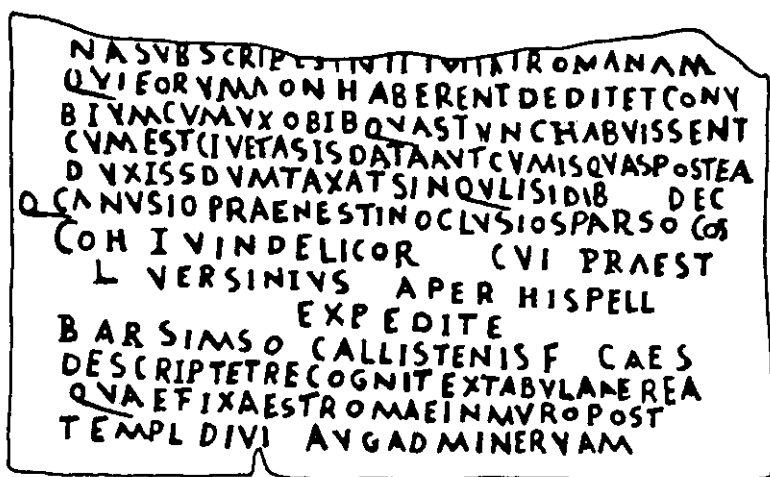 NASVBSCRIPTSVNT CIVITATROMANAM
QVIEORVMAONHABERENTDEDITETCONV
BIVMCVMVXOBIBQVASTVNCHABVISSENT
CVMESTCIVETASISDATAAVTCVMISQVASPOSTEA
DVXISSDVMTAXATSINQVLISIDIB DEC
QCANVSIOPRAENESTINOCLVSIOSPARSO COS
COH I VINDELICOR CVI PRAEST
L VERSINIVS APER HISPELL
EXPEDITE
BARSIMSO CALLISTENIS F CAES
DESCRIPTETRECOGNITEXTABVLAAEREA
QVAEFIXAESTROMAEINMVROPOST
TEMPL DIVI AVGADMINERVAM